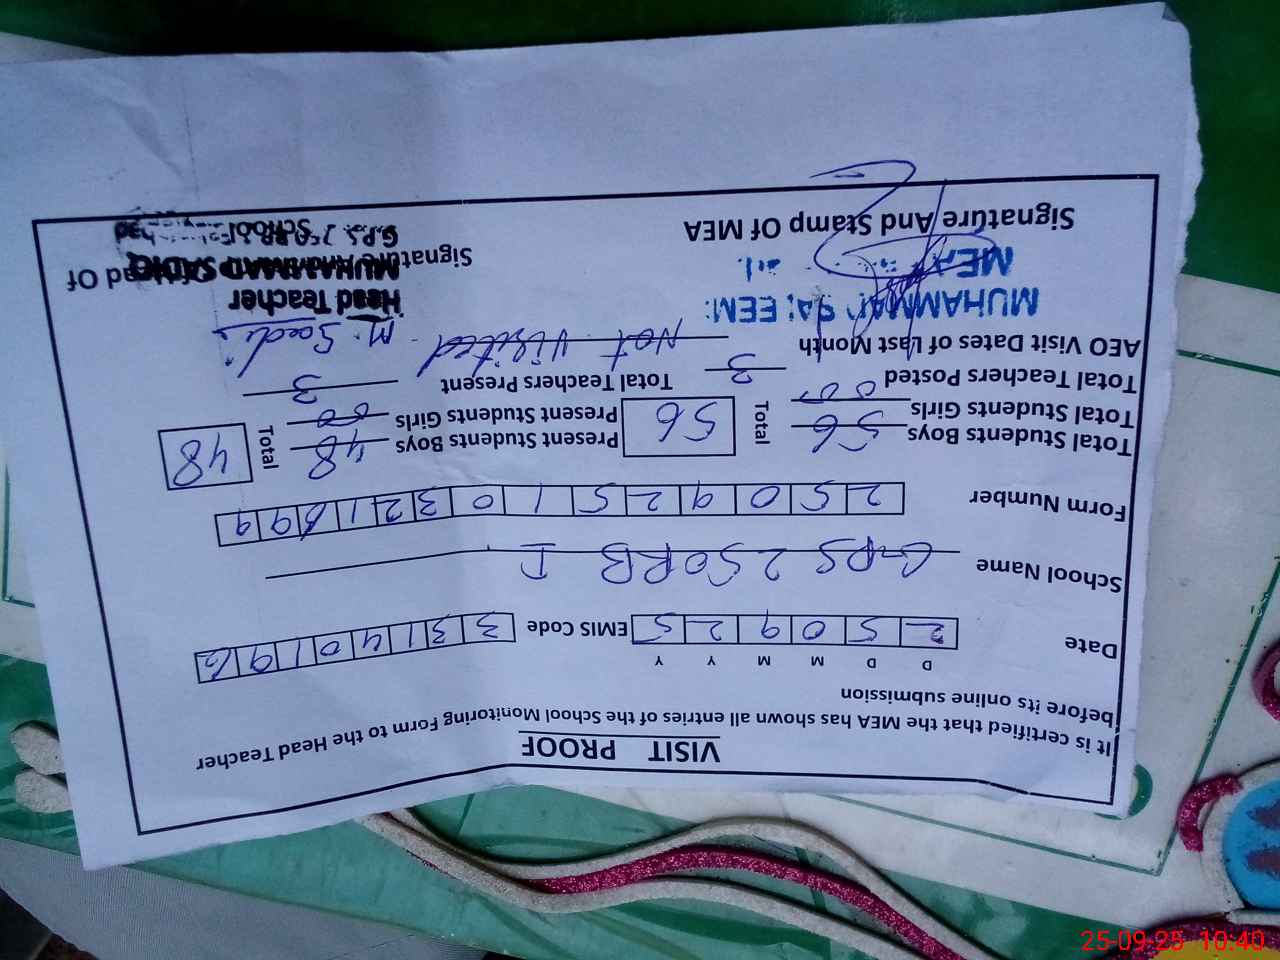 VISIT PROOF
It is certified that the MEA has shown all entries of the School Monitoring Form to the Head Teacher
before its online submission
D D M M Y Y
Date 2 5 0 9 2 5 EMIS Code 3 3 1 4 0 1 9 6
School Name GPS 250RB I
Form Number 2 5 0 9 2 5 1 0 3 2 1 9 9
Total Students Boys 56 Total 56 Present Students Boys 48 Total 48
Total Students Girls 00 Present Students Girls 00
Total Teachers Posted 3 Total Teachers Present 3
AEO Visit Dates of Last Month Not Visited
M. Sadiq
MUHAMMAD SALEEM
MEA
Head Teacher
MUHAMMAD SADIQ
G.P.S. 250 RB I
School
Signature And Stamp Of MEA
Signature And Stamp Of Head Of School
25-09-25 10:40